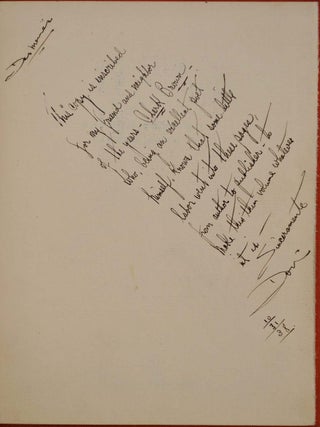 This copy is inscribed
for my friend and neighbor
of the years - Clark Brown -
who being an excellent poet
himself knows that some little
labor went into these pages,
from author to publisher - to
make this thin volume whatever
it is
Sinceramente
Don
10
31